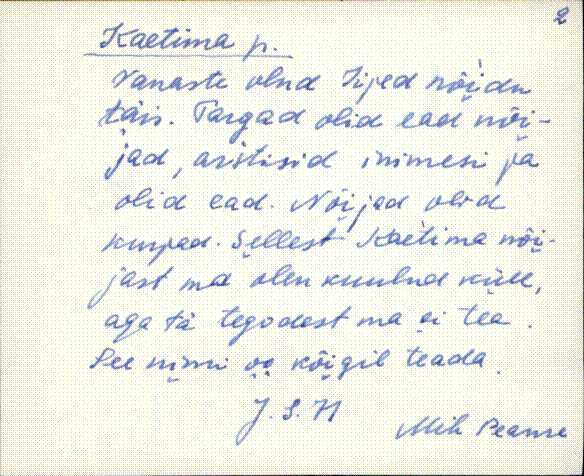 2
Kaetima p.
Vanaste olnd Iiped nõidu
täis. Targad olid ead nõi-
jad, arstisid inimesi ja
olid ead. Nõijad olid
kurjad. Sellest Kaetima nõi-
jast ma olen kuulnd küll,
aga tä tegodest ma ei tea.
See nimi oo kõigil teada.
J. S. H
Mih Peamre